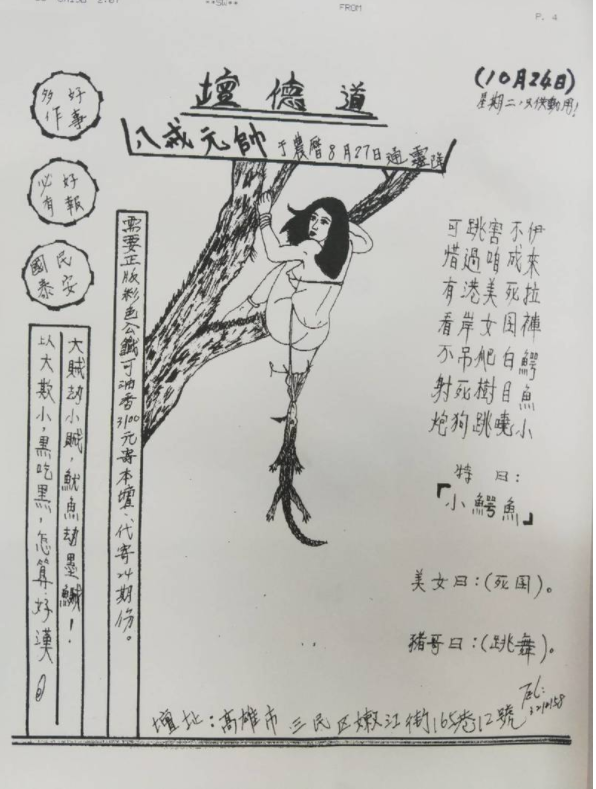 FROM
P. 4
道德壇
(10月24日)
星期二
八戒元帥 于農曆8月27日通靈降
多作好事
必有好報
國泰民安
伊來拉褲鱷魚小
不成死囝白目曉
害咱美女爬樹跳
跳過港岸吊死狗
可惜有看不射炮
特曰:
「小鱷魚」
美女曰:(死囝)。
豬哥曰:(跳舞)。
需要正版彩色公鐵可油香3100元寄本壇、代寄24期份。
大賊劫小賊,魷魚劫墨鰂!
以大欺小,黑吃黑,怎算好漢
壇址:高雄市三民区嫩江街165巷12號
Tel: